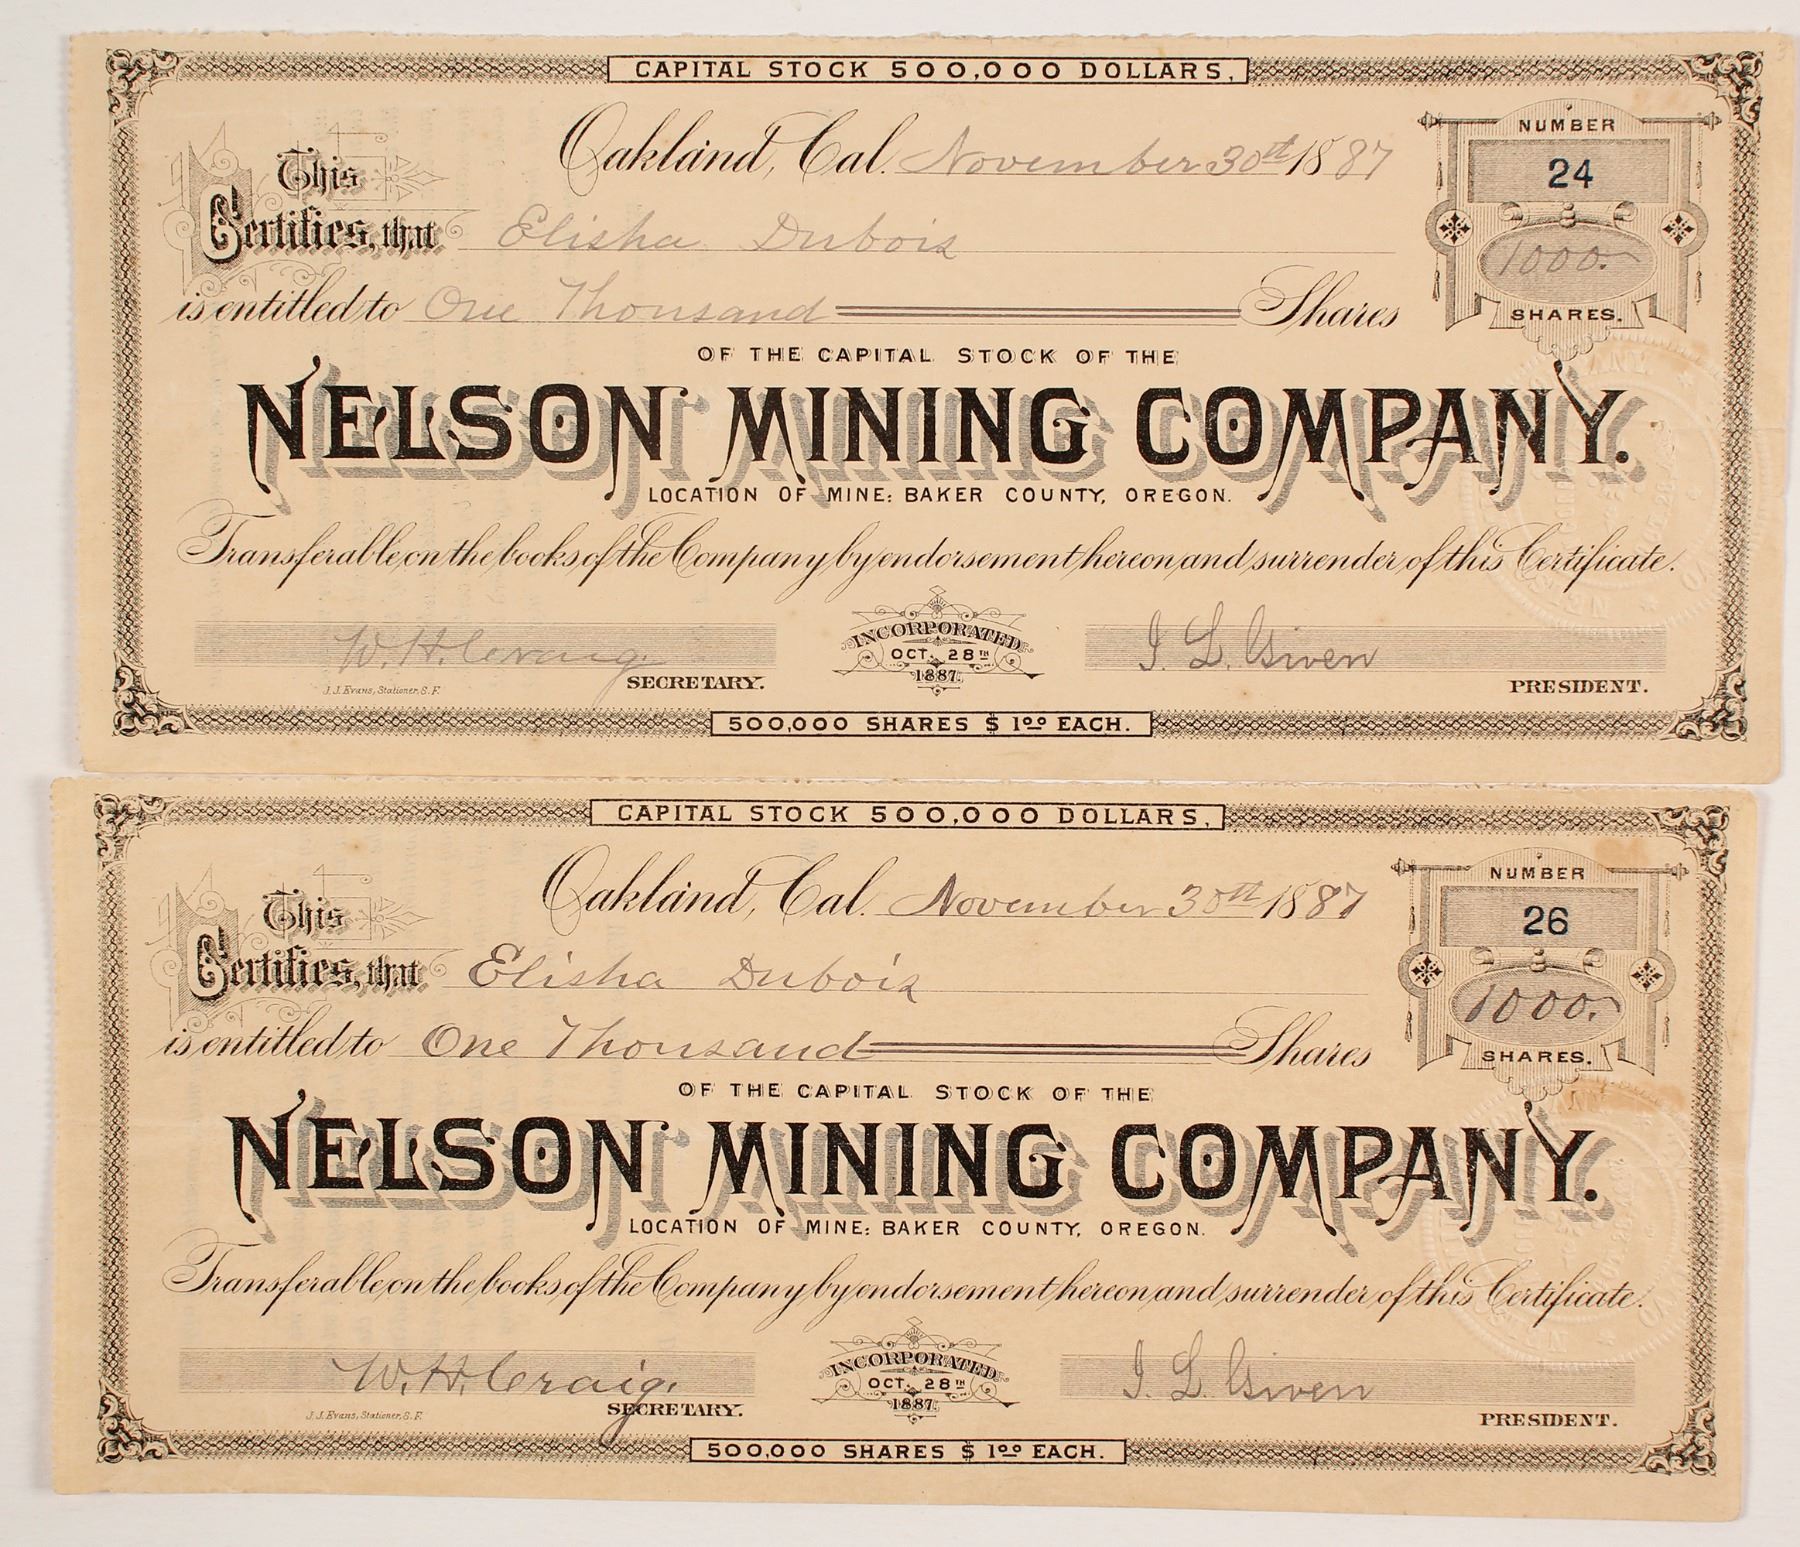 CAPITAL STOCK 500,000 DOLLARS,
Oakland, Cal. November 30th 1887
NUMBER
24
This
Certifies, that Elisha Dubois
1000.
is entitled to One Thousand Shares
SHARES.
OF THE CAPITAL STOCK OF THE
NELSON MINING COMPANY.
LOCATION OF MINE: BAKER COUNTY, OREGON.
Transferable on the books of the Company by endorsement hereon and surrender of this Certificate.
W. H. Craig
SECRETARY.
J.J. Evans, Stationer, S.F.
INCORPORATED
OCT. 28TH
1887.
I. L. Given
PRESIDENT.
500,000 SHARES $1.00 EACH.
CAPITAL STOCK 500,000 DOLLARS,
Oakland, Cal. November 30th 1887
NUMBER
26
This
Certifies, that Elisha Dubois
1000.
is entitled to One Thousand Shares
SHARES.
OF THE CAPITAL STOCK OF THE
NELSON MINING COMPANY.
LOCATION OF MINE: BAKER COUNTY, OREGON.
Transferable on the books of the Company by endorsement hereon and surrender of this Certificate.
W. H. Craig.
SECRETARY.
J.J. Evans, Stationer, S.F.
INCORPORATED
OCT. 28TH
1887.
I. L. Given
PRESIDENT.
500,000 SHARES $1.00 EACH.